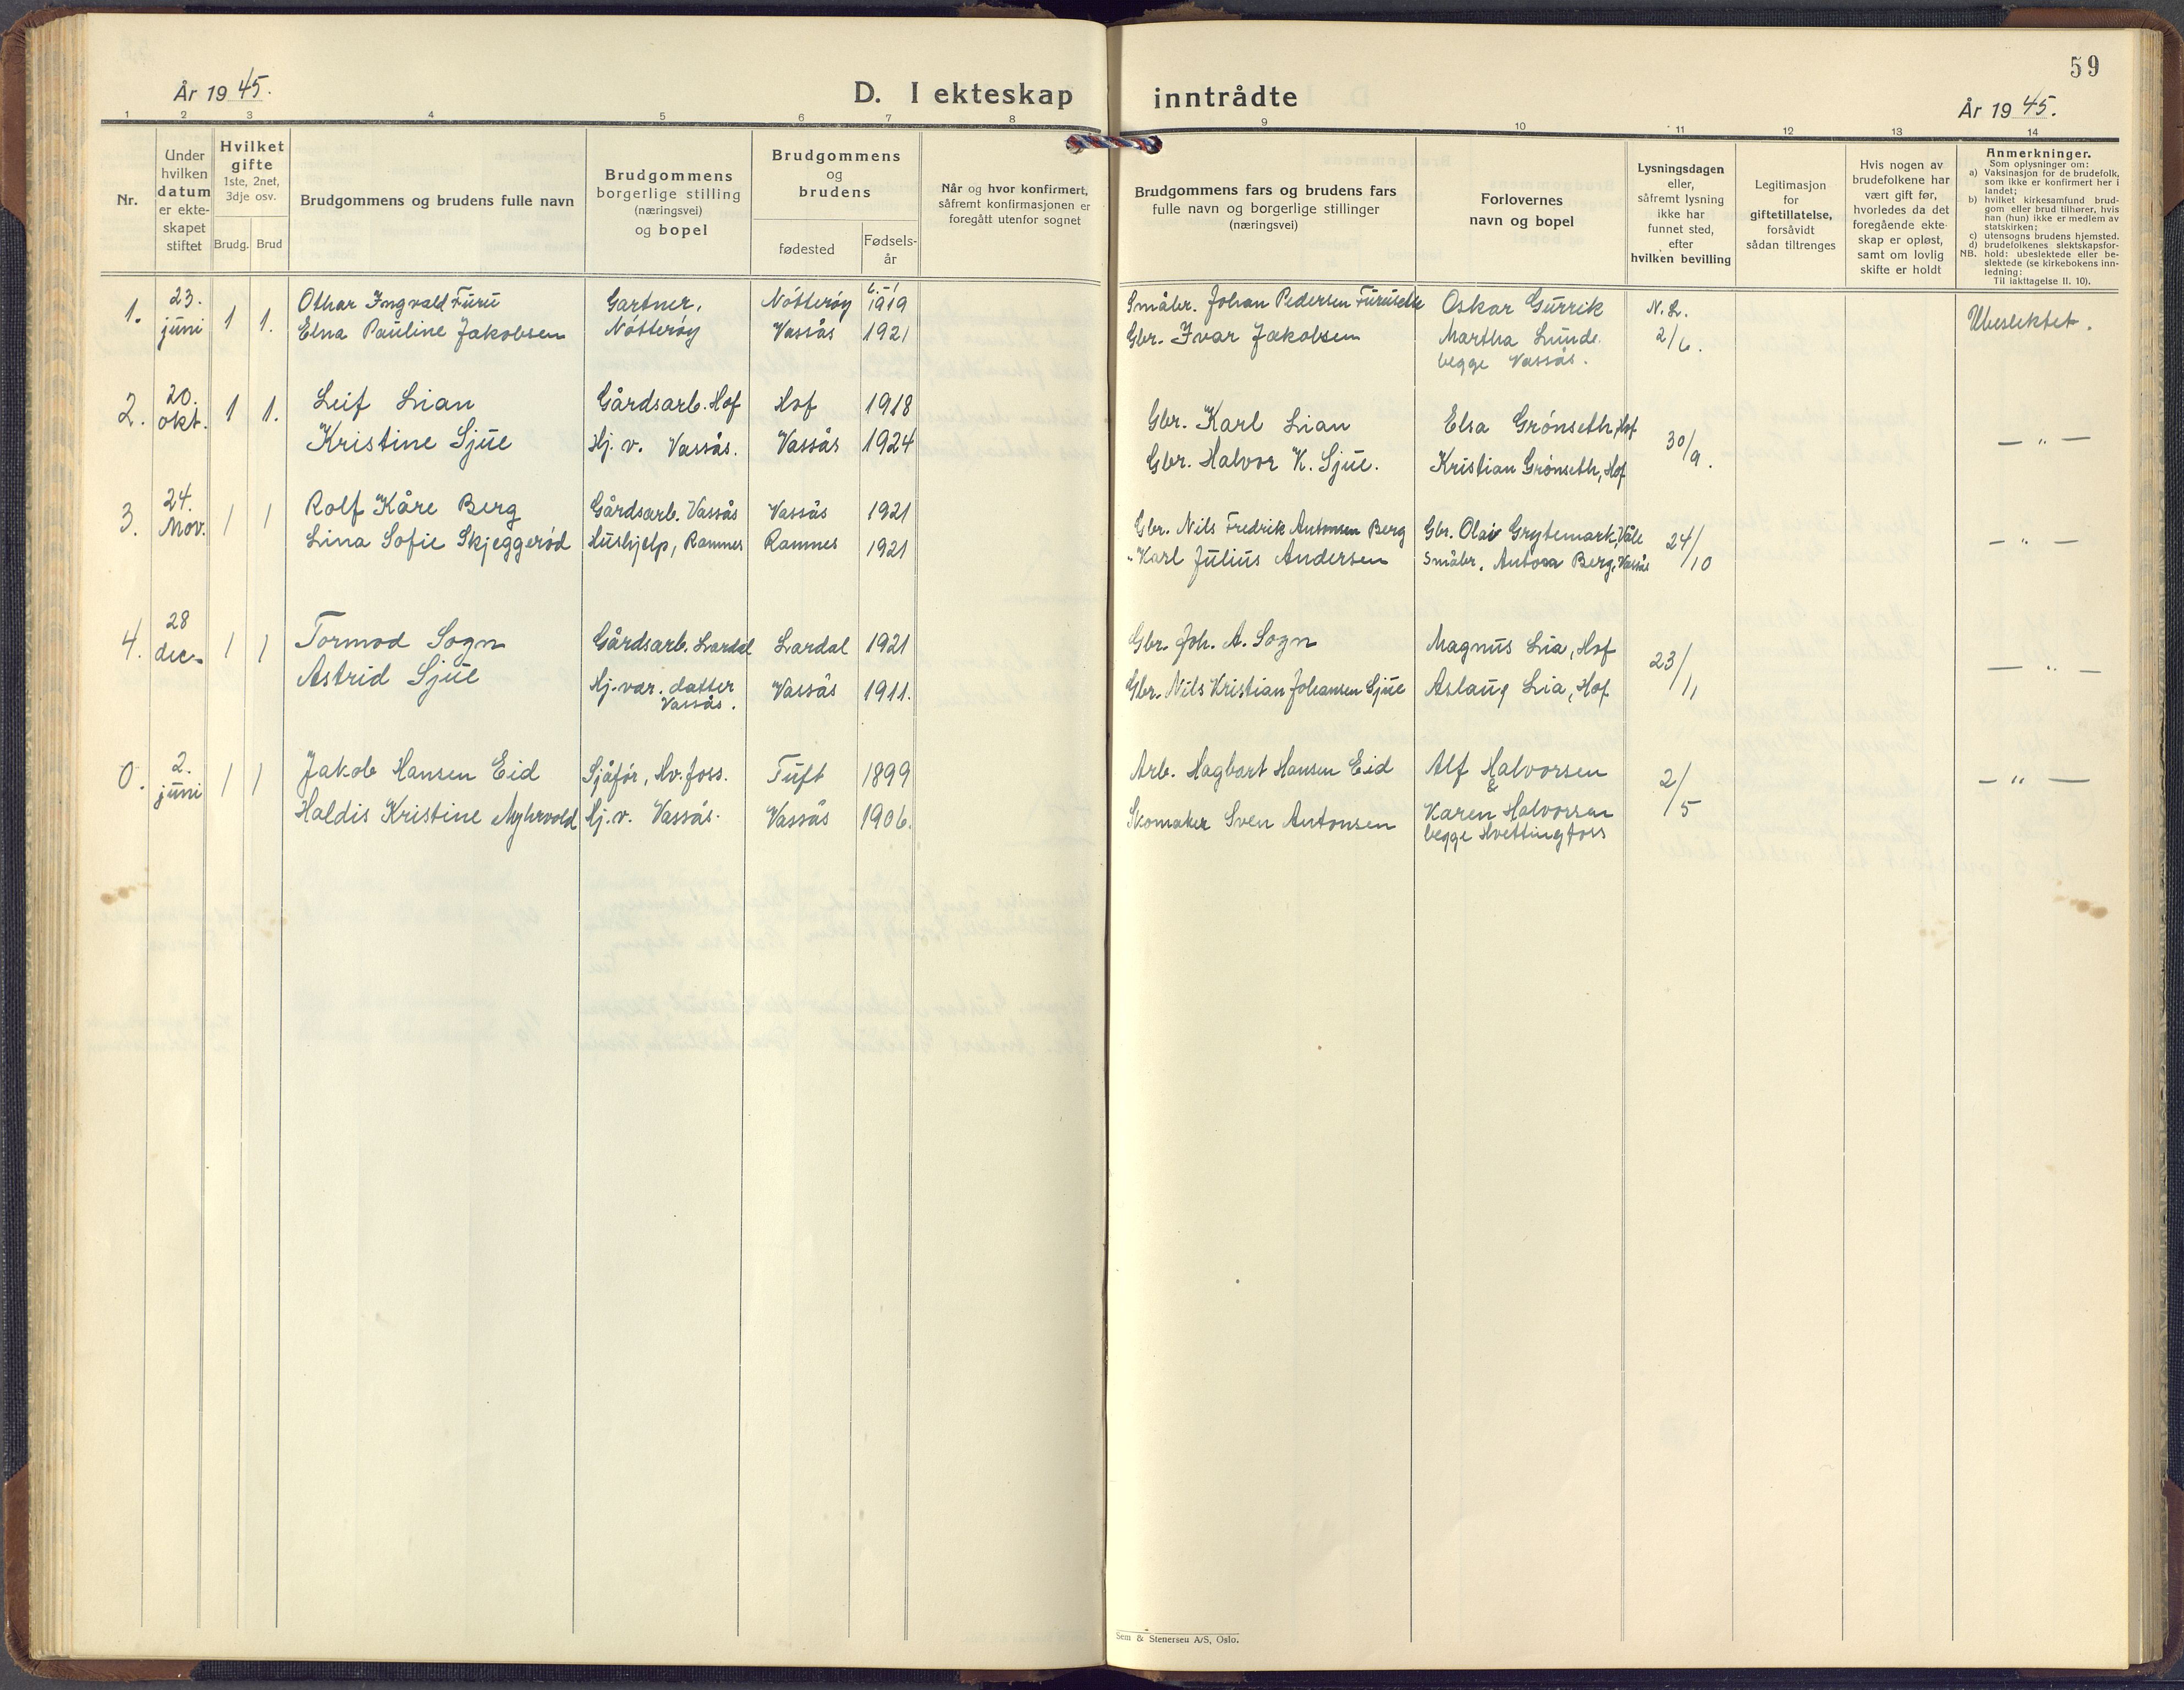 59
År 1945.
D. I ekteskap inntrådte
År 1945.
1 2 3 4 5 6 7 8 9 10 11 12 13 14
Nr.
Under
hvilken
datum
er ekte-
skapet
stiftet
Hvilket
gifte
1ste, 2net,
3dje osv.
Brudg. Brud
Brudgommens og brudens fulle navn
Brudgommens
borgerlige stilling
(næringsvei)
og bopel
Brudgommens
og
brudens
fødested
Fødsels-
år
Når og hvor konfirmert,
såfremt konfirmasjonen er
foregått utenfor sognet
Brudgommens fars og brudens fars
fulle navn og borgerlige stillinger
(næringsvei)
Forlovernes
navn og bopel
Lysningsdagen
eller,
såfremt lysning
ikke har
funnet sted,
efter
hvilken bevilling
Legitimasjon
for
giftetillatelse,
forsåvidt
sådan tiltrenges
Hvis nogen av
brudefolkene har
vært gift før,
hvorledes da det
foregående ekte-
skap er opløst,
samt om lovlig
skifte er holdt
Anmerkninger.
Som oplysninger om:
a) Vaksinasjon for de brudefolk,
som ikke er konfirmert her i
landet;
b) hvilket kirkesamfund brud-
gom eller brud tilhører, hvis
han (hun) ikke er medlem av
statskirken;
c) utensogns brudens hjemsted.
d) brudefolkenes slektskapsfor-
NB. hold: ubeslektede eller be-
slektede (se kirkebokens inn-
ledning:
Til iakttagelse II. 10).
1. 23. juni 1 1. Othar Ingvald Furu Gartner, Nøtterøy 1919 Småbr. Johan Pedersen Furusette Oskar Gurrik N. L. 2/6. Ubeslektet.
Elna Pauline Jakobsen Nøtterøy Vassås 1921 Gbr. Ivar Jakobsen Martha Lunde
begge Vassås.
2. 20. okt. 1 1. Leif Lian Gårdsarb. Hof Hof 1918 Gbr. Karl Lian Elsa Grønseth, Hof 30/9. — " —
Kristine Sjue Hj. v. Vassås. Vassås 1924 Gbr. Halvor K. Sjue. Kristian Grønseth, Hof
3. 24. Nov. 1 1 Rolf Kåre Berg Gårdsarb. Vassås Vassås 1921 Gbr. Nils Fredrik Antonsen Berg Gbr. Olav Grytemark, Våle 24/10 — " —
Lina Sofie Skjeggerød Hushjelp, Ramnes Ramnes 1921 " Karl Julius Andersen Småbr. Anton Berg, Vassås
4. 28 dec. 1 1 Tormod Sogn Gårdsarb. Lardal Lardal 1921 Gbr. Joh. A. Sogn Magnus Lia, Hof 23/11 — " —
Astrid Sjue Hj. vær. datter Vassås. Vassås 1911. Gbr. Nils Kristian Johansen Sjue Aslaug Lia, Hof
0. 2. juni 1 1 Jakob Hansen Eid Sjåfør, Hv. foss. Tuft 1899 Arb. Hagbart Hansen Eid Alf Halvorsen 2/5 — " —
&
Haldis Kristine Myhrvold Hj. v. Vassås. Vassås 1906. Skomaker Sven Antonsen Karen Halvorsen
begge Hvettingfoss
Sem & Stenersen A/S, Oslo.